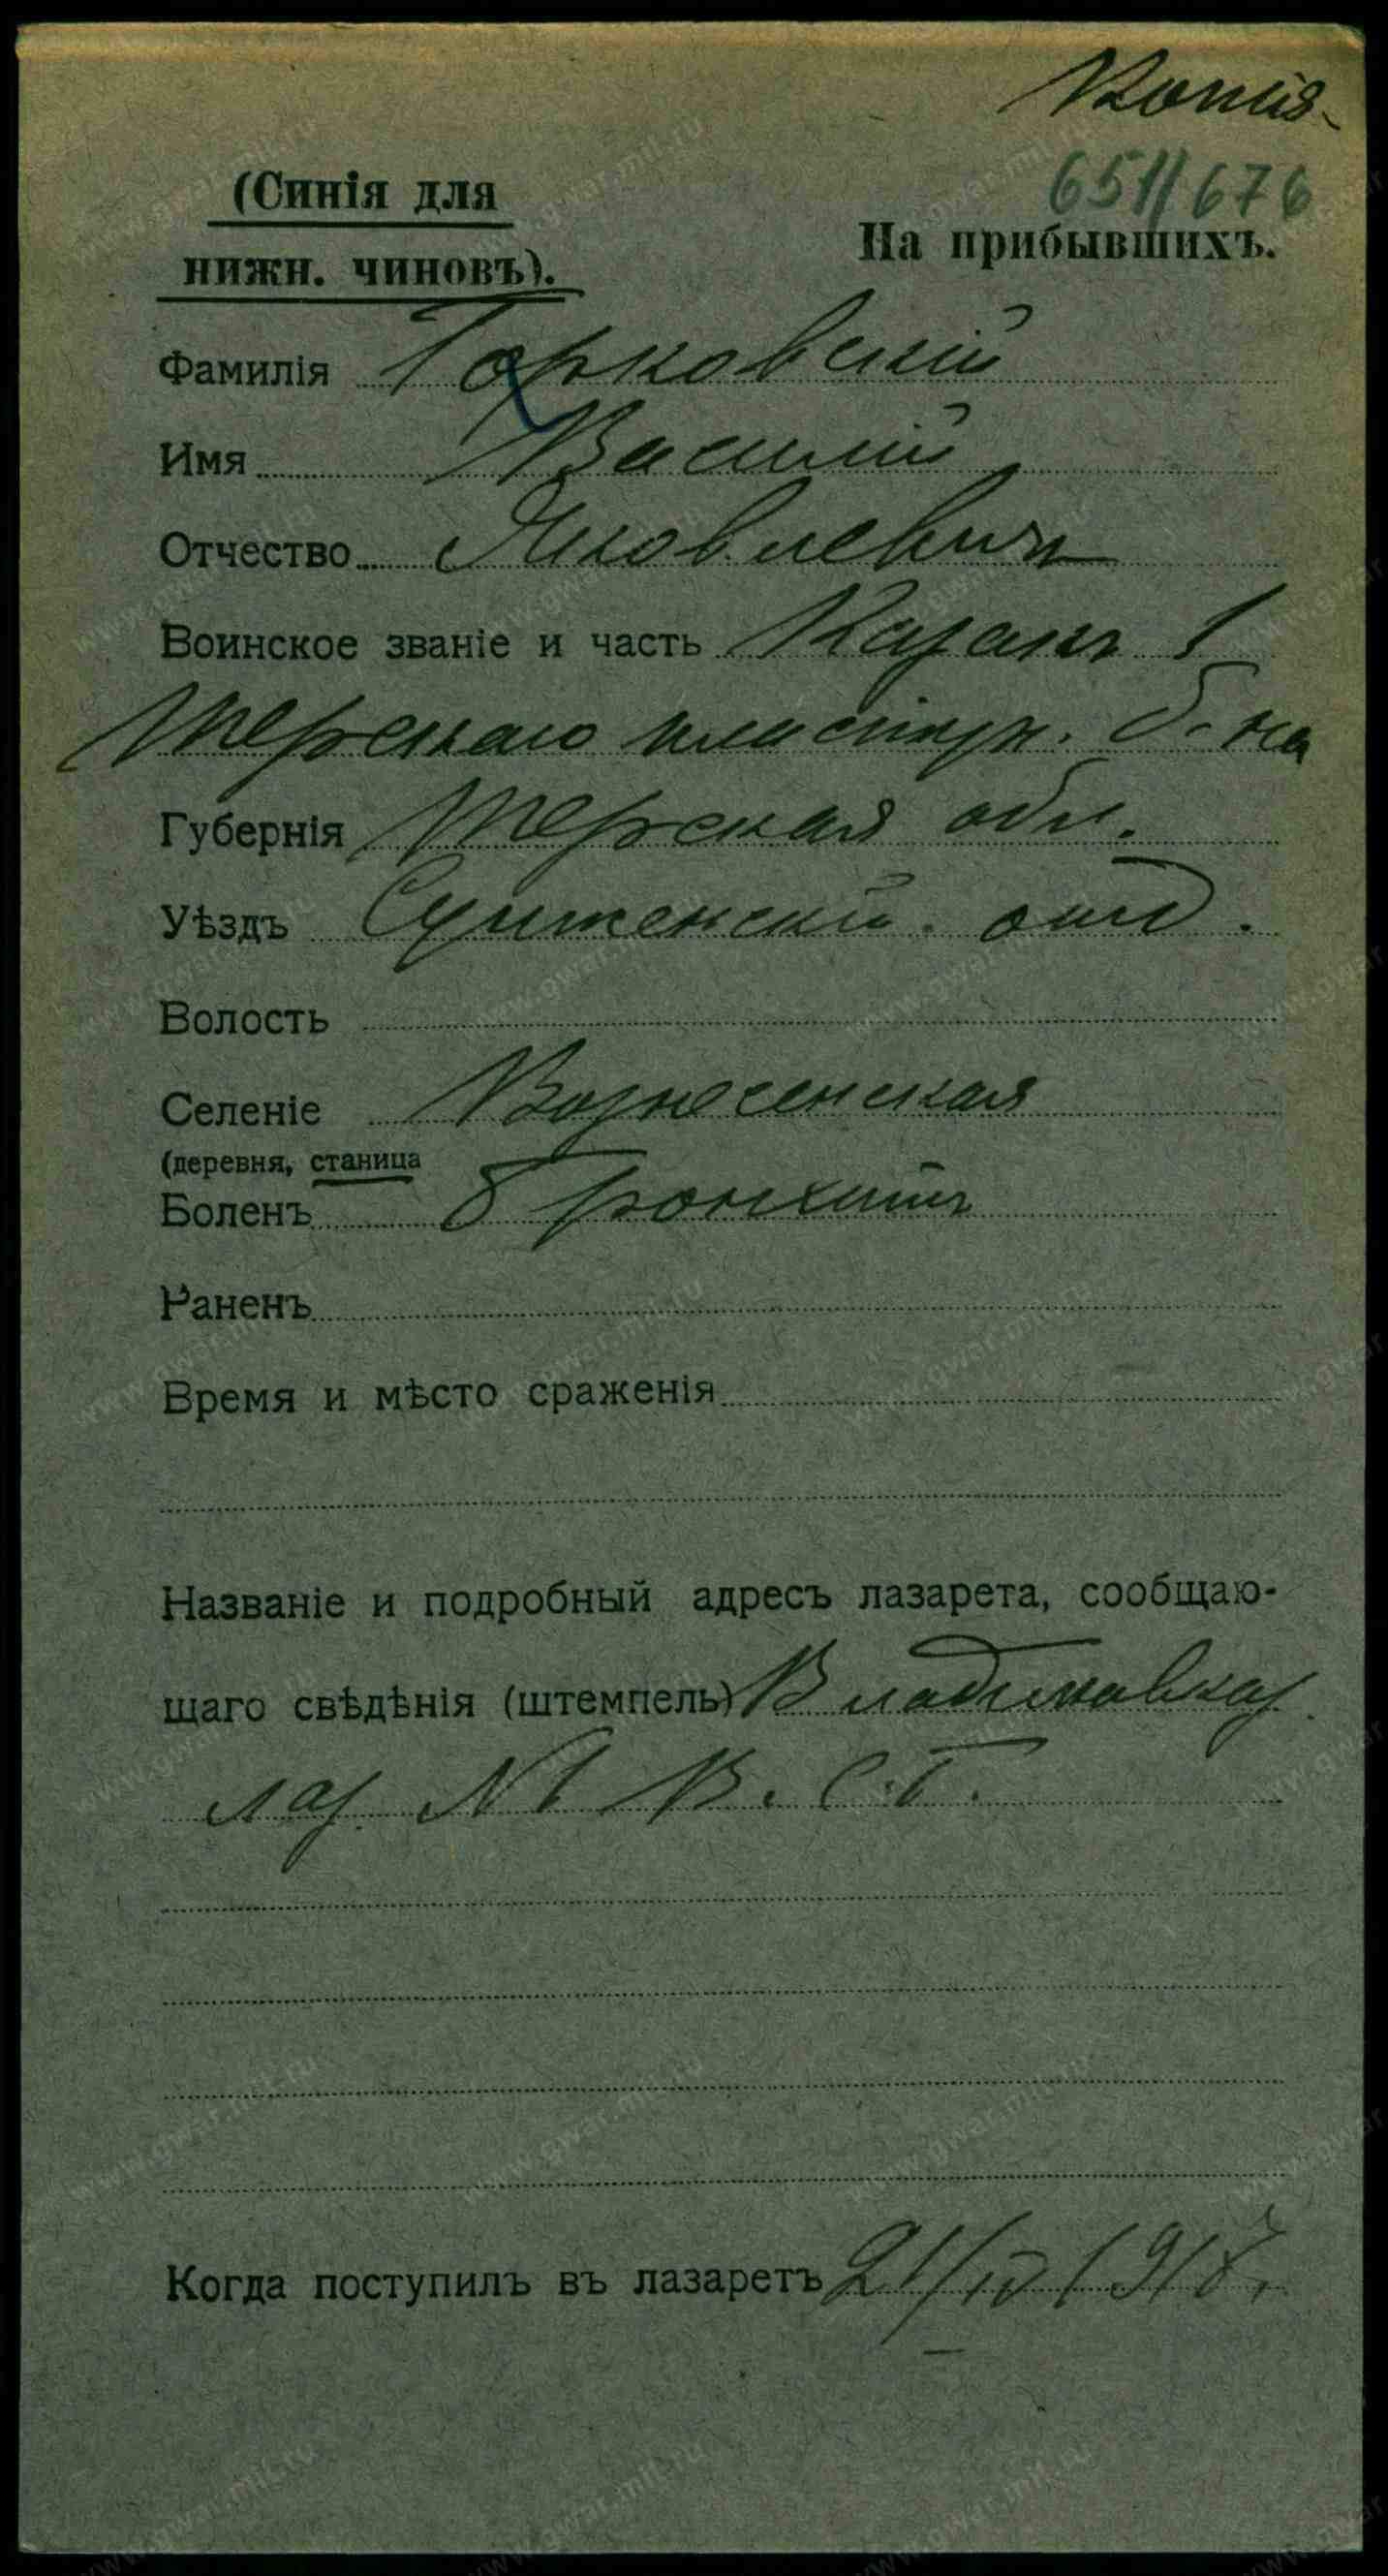 Копія
6511/676
(Синія для
нижн. чиновъ).
На прибывшихъ.
Фамилія Горковскій
Имя Василій
Отчество Яковлевичъ
Воинское званіе и часть Казакъ 1
Терскаго пластун. б-на
Губернія Терская обл.
Уѣздъ Сунженскій. отд.
Волость
Селеніе Вознесенская
(деревня, станица
Боленъ Бронхитъ
Раненъ
Время и мѣсто сраженія
Названіе и подробный адресъ лазарета, сообщаю-
щаго свѣдѣнія (штемпель) Владикавказ.
лаз. № 1 В. С. Г.
Когда поступилъ въ лазаретъ